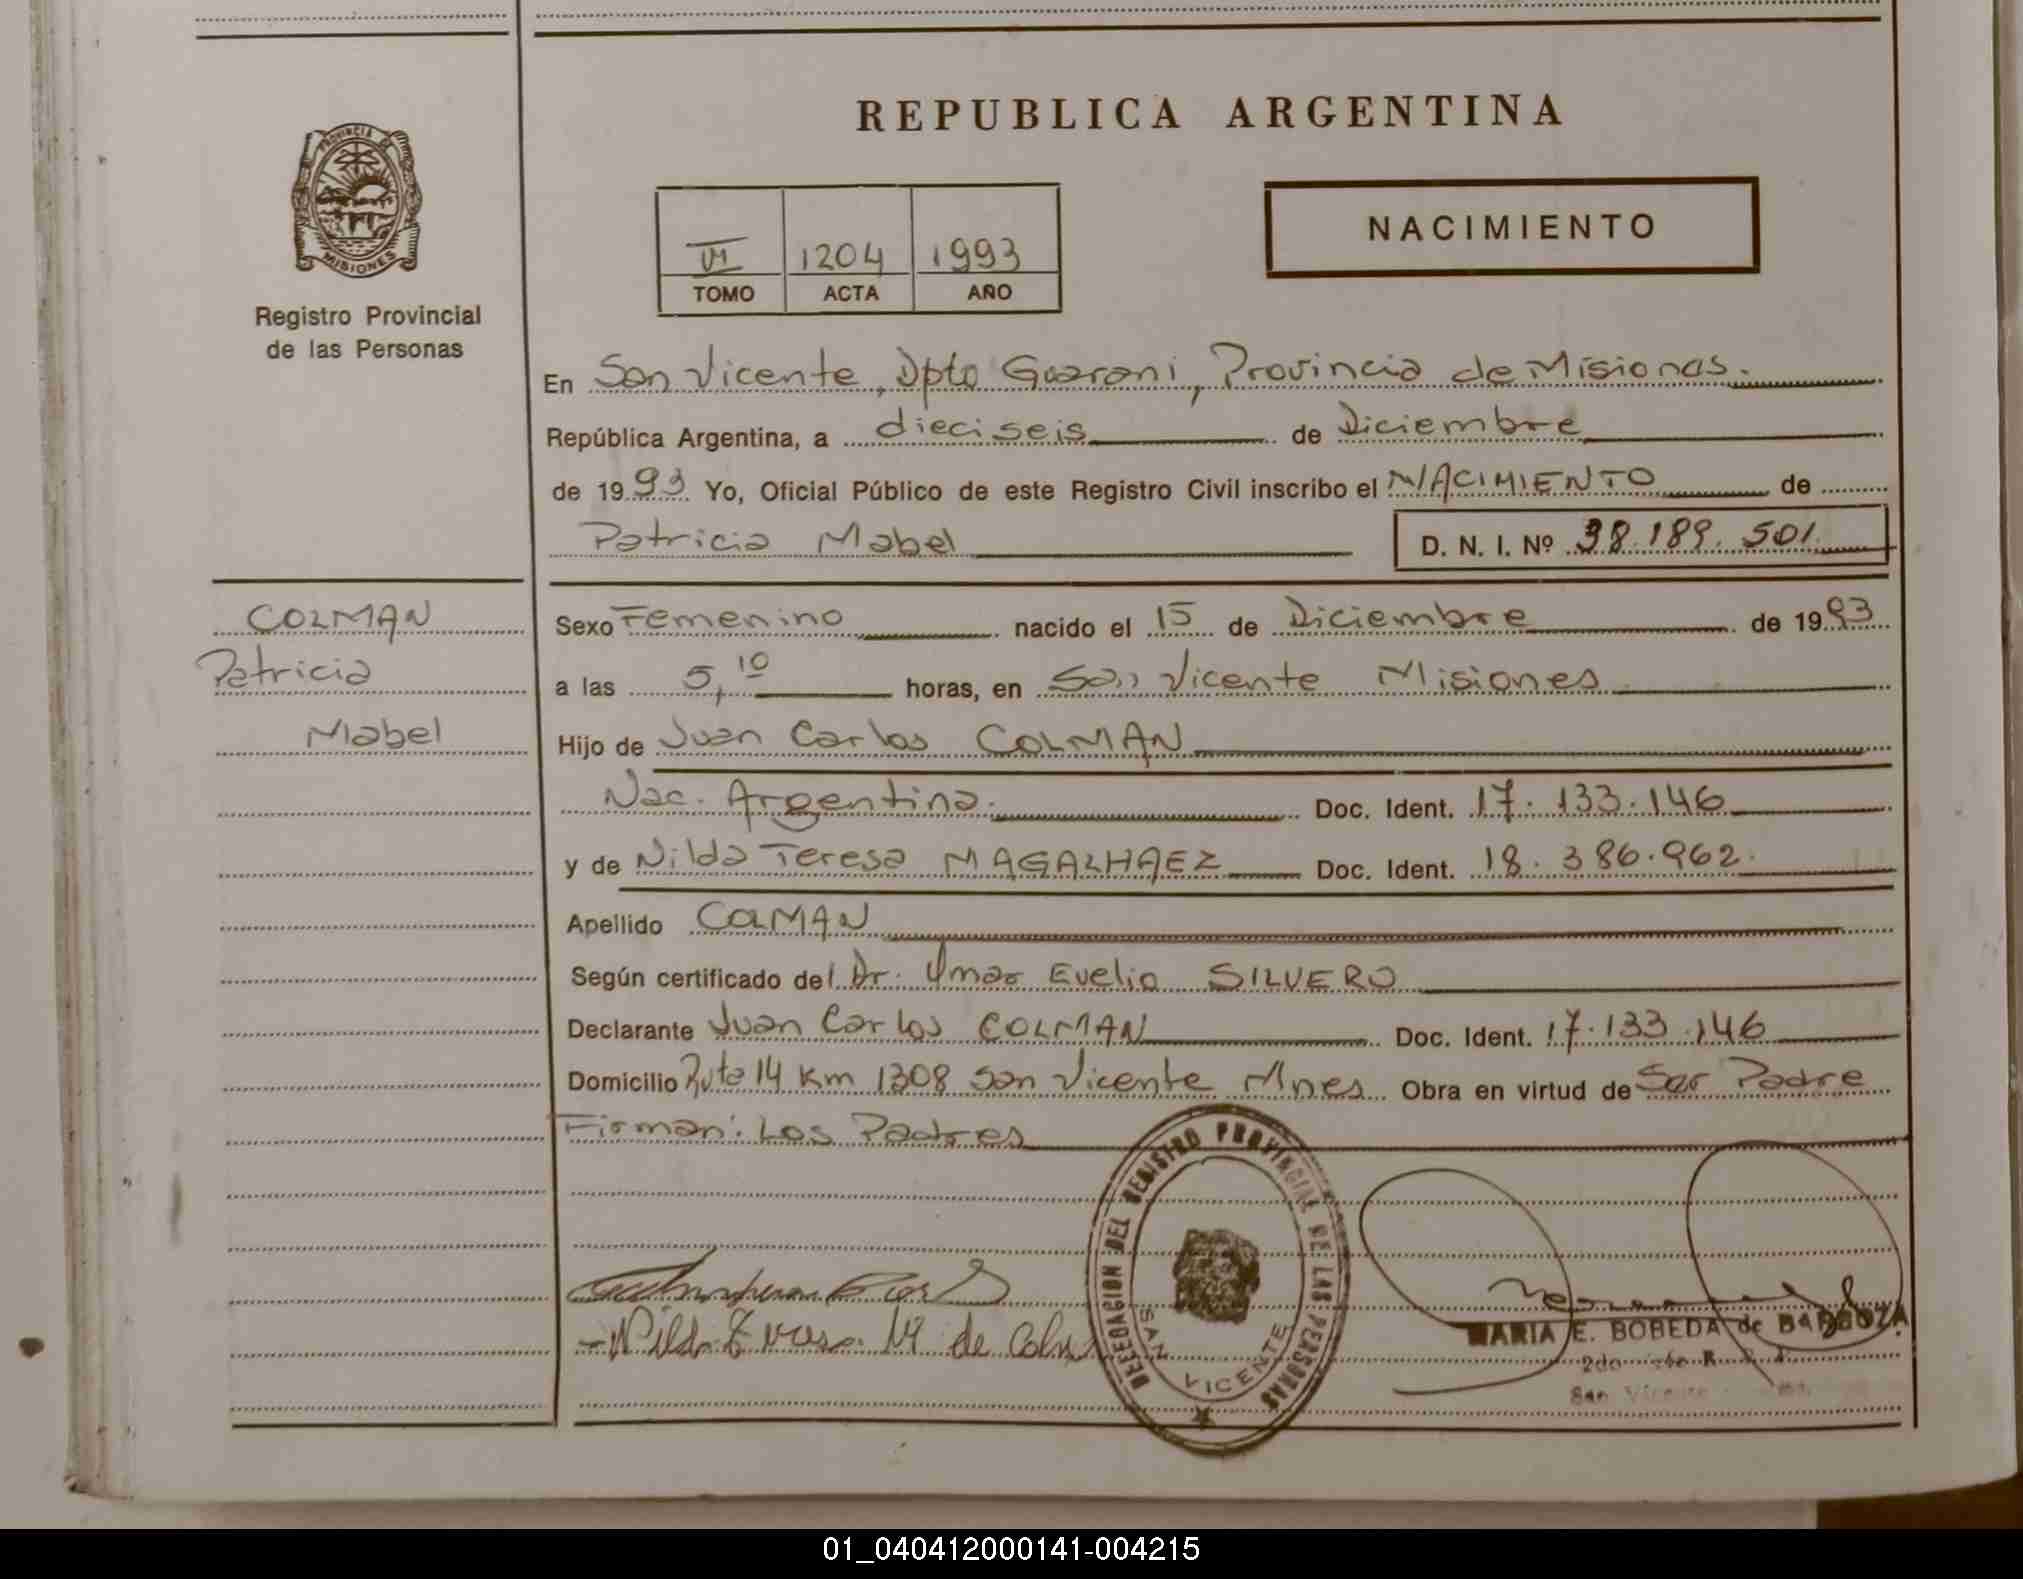 PROVINCIA DE
MISIONES
Registro Provincial
de las Personas
REPUBLICA ARGENTINA
NACIMIENTO
VI 1204 1993
TOMO ACTA AÑO
En San Vicente, Dpto Guarani, Provincia de Misiones.
República Argentina, a dieciseis de Diciembre
de 1993 Yo, Oficial Público de este Registro Civil inscribo el NACIMIENTO de
Patricia Mabel D. N. I. Nº 38.189.501
COLMAN
Patricia
Mabel
Sexo Femenino nacido el 15 de Diciembre de 1993
a las 5,10 horas, en San Vicente Misiones
Hijo de Juan Carlos COLMAN
Nac. Argentina. Doc. Ident. 17.133.146
y de Nilda Teresa MAGALHAEZ Doc. Ident. 18.386.962
Apellido COLMAN
Según certificado del Dr. Omar Evelio SILVERO
Declarante Juan Carlos COLMAN Doc. Ident. 17.133.146
Domicilio Ruta 14 Km 1308 San Vicente Mnes Obra en virtud de Ser Padre
Firman: Los Padres
DELEGACION DEL REGISTRO PROVINCIAL DE LAS PERSONAS
SAN VICENTE
Nilda Teresa M de
MARIA E. BOBEDA de BARBOZA
San Vicente
01_040412000141-004215